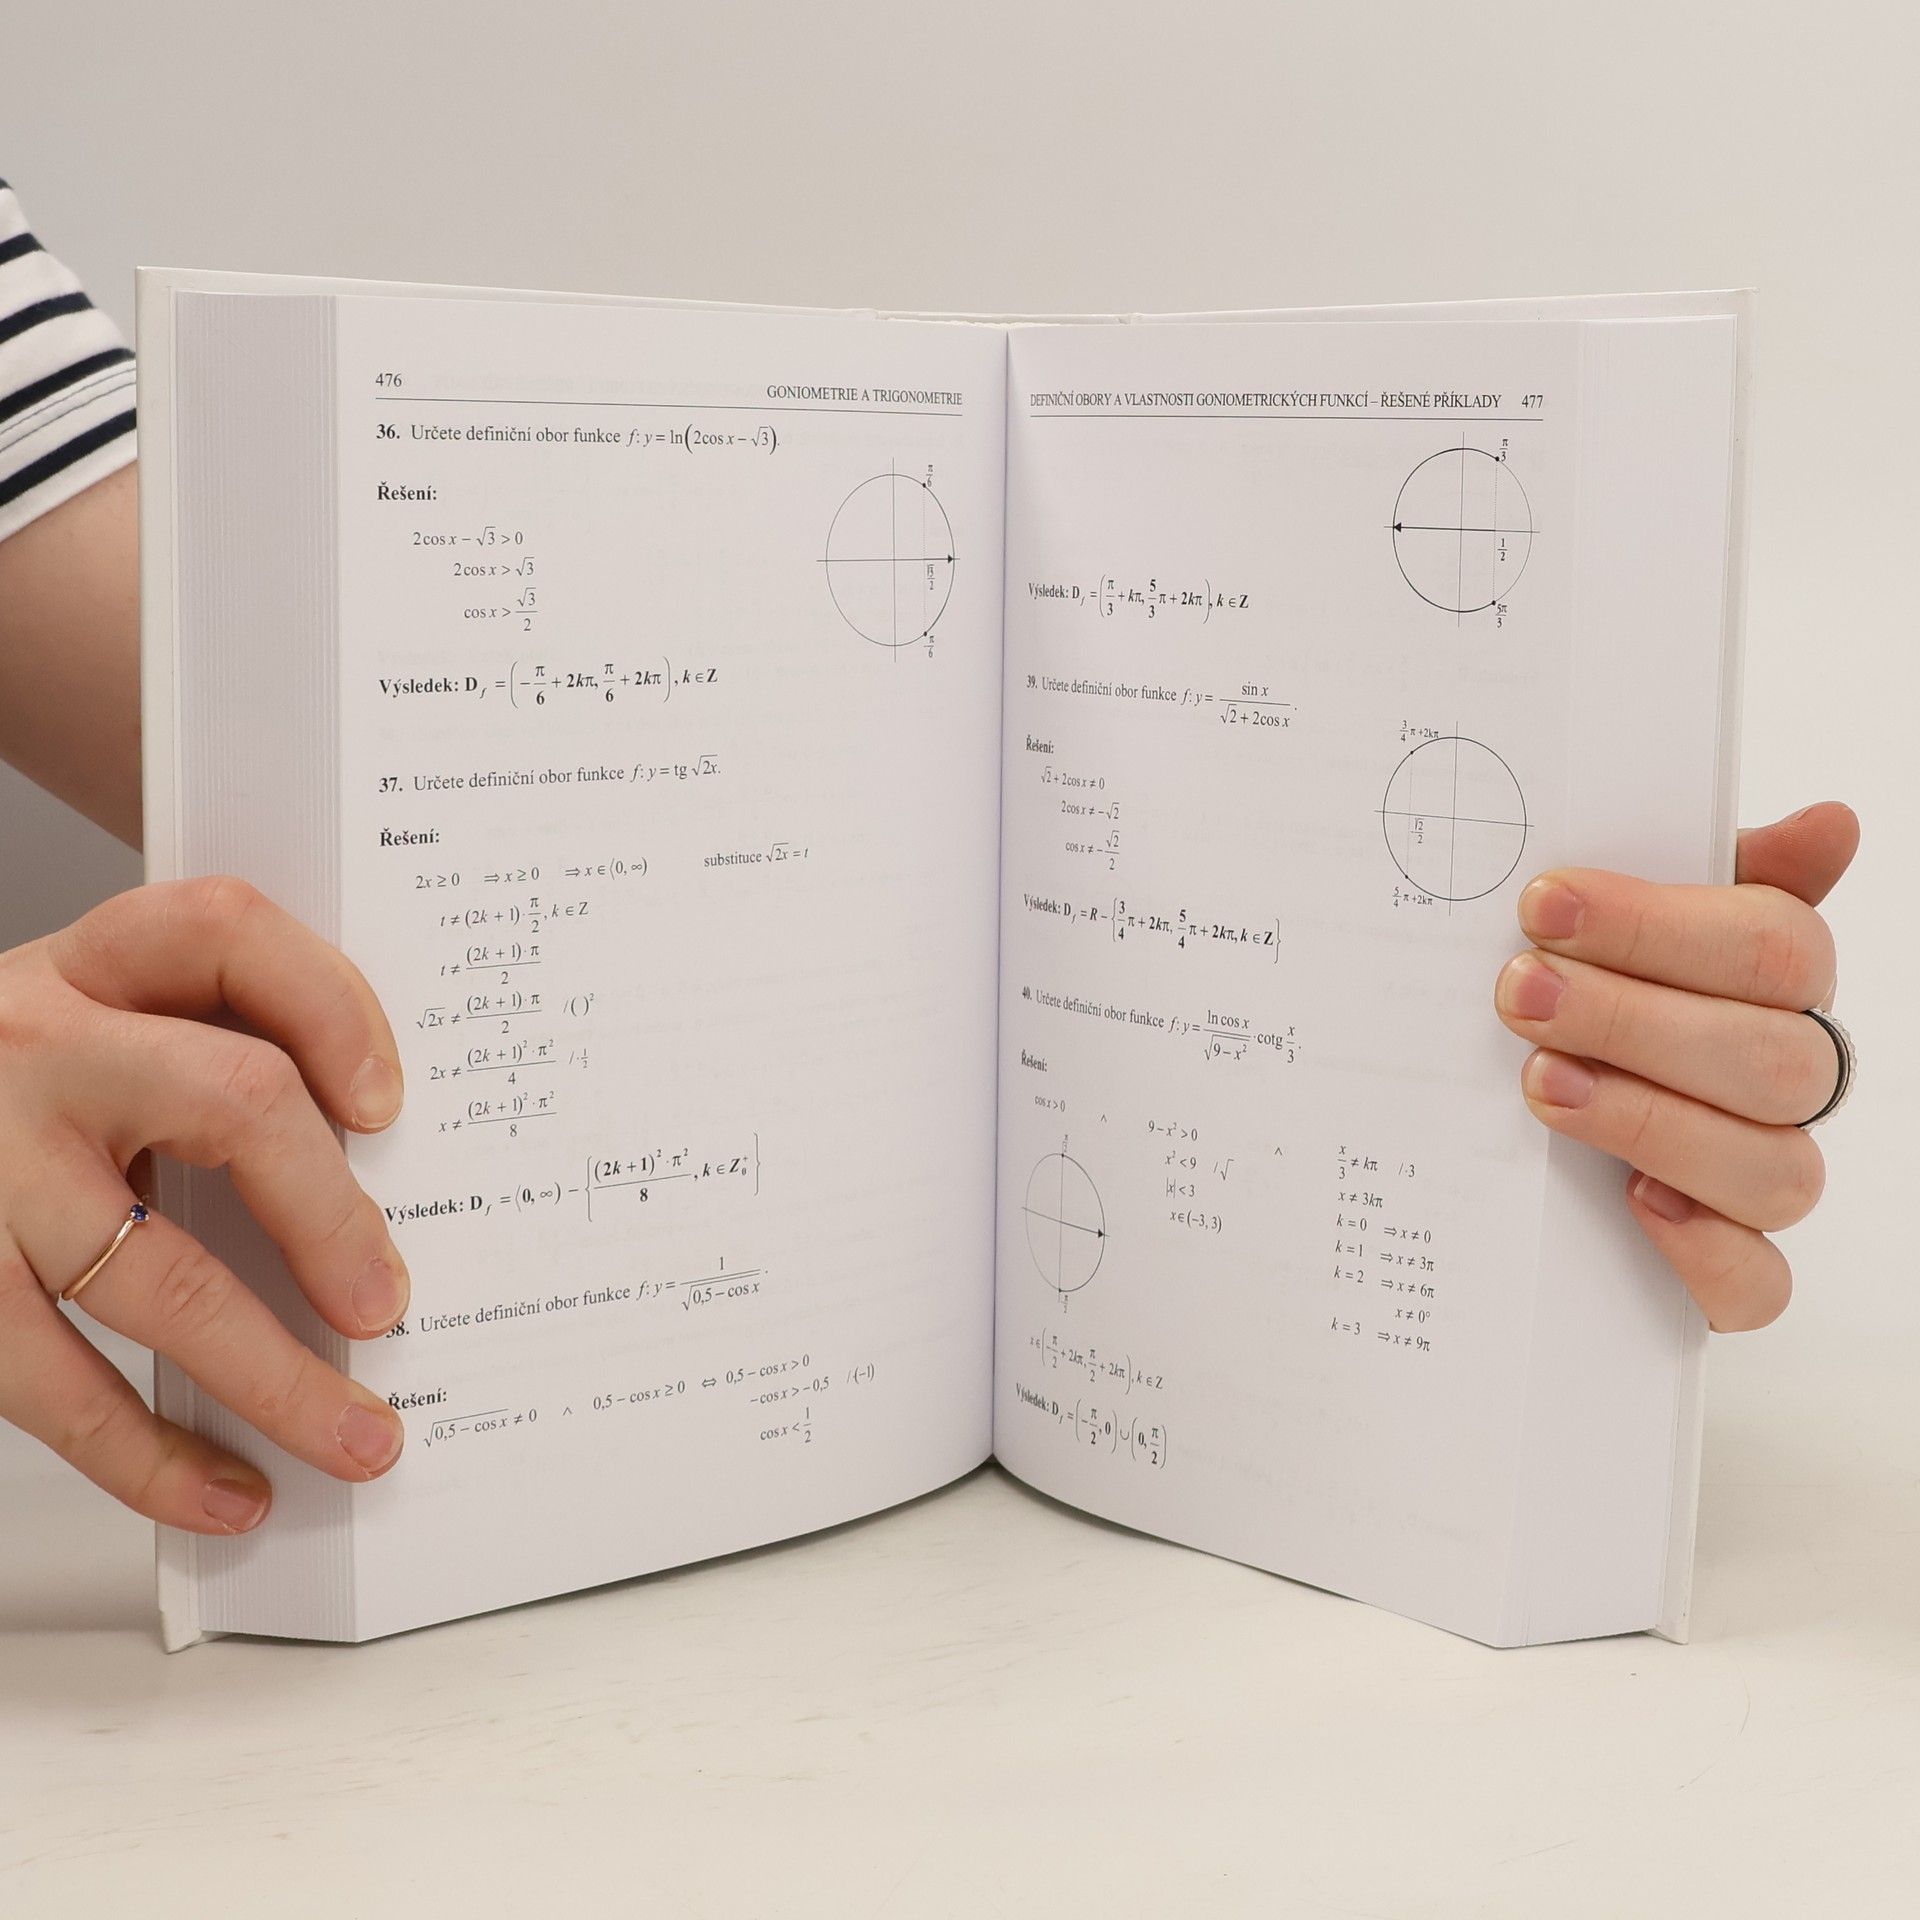 476
GONIOMETRIE A TRIGONOMETRIE
36. Určete definiční obor funkce f: y = ln(2cos x − √3).
π/6
Řešení:
2cos x − √3 > 0
2cos x > √3
cos x > √3/2
√3/2
π/6
Výsledek: D_f = (−π/6 + 2kπ, π/6 + 2kπ), k ∈ Z
37. Určete definiční obor funkce f: y = tg √2x.
Řešení:
2x ≥ 0 ⇒ x ≥ 0 ⇒ x ∈ ⟨0, ∞) substituce √2x = t
t ≠ (2k + 1)·π/2, k ∈ Z
t ≠ (2k + 1)·π/2
√2x ≠ (2k + 1)·π/2 /( )²
2x ≠ (2k + 1)²·π²/4 /·1/2
x ≠ (2k + 1)²·π²/8
Výsledek: D_f = ⟨0, ∞) − {(2k + 1)²·π²/8, k ∈ Z₀⁺}
38. Určete definiční obor funkce f: y = 1/√(0,5 − cos x).
Řešení:
√(0,5 − cos x) ≠ 0 ∧ 0,5 − cos x ≥ 0 ⇔ 0,5 − cos x > 0
−cos x > −0,5 /·(−1)
cos x < 1/2
DEFINIČNÍ OBORY A VLASTNOSTI GONIOMETRICKÝCH FUNKCÍ – ŘEŠENÉ PŘÍKLADY 477
π/3
1/2
5π/3
Výsledek: D_f = (π/3 + kπ, 5/3π + 2kπ), k ∈ Z
39. Určete definiční obor funkce f: y = sin x/(√2 + 2cos x).
3/4 π + 2kπ
Řešení:
√2 + 2cos x ≠ 0
2cos x ≠ −√2
cos x ≠ −√2/2
√2/2
5/4 π + 2kπ
Výsledek: D_f = R − {3/4π + 2kπ, 5/4π + 2kπ, k ∈ Z}
40. Určete definiční obor funkce f: y = ln cos x/√(9 − x²)·cotg x/3.
Řešení:
cos x > 0 ∧ 9 − x² > 0 ∧ x/3 ≠ kπ /·3
π/2
x² < 9 /√
|x| < 3
x ∈ (−3, 3)
−π/2
x ≠ 3kπ
k = 0 ⇒ x ≠ 0
k = 1 ⇒ x ≠ 3π
k = 2 ⇒ x ≠ 6π
x ≠ 0°
k = 3 ⇒ x ≠ 9π
x ∈ (−π/2 + 2kπ, π/2 + 2kπ), k ∈ Z
Výsledek: D_f = (−π/2, 0) ∪ (0, π/2)